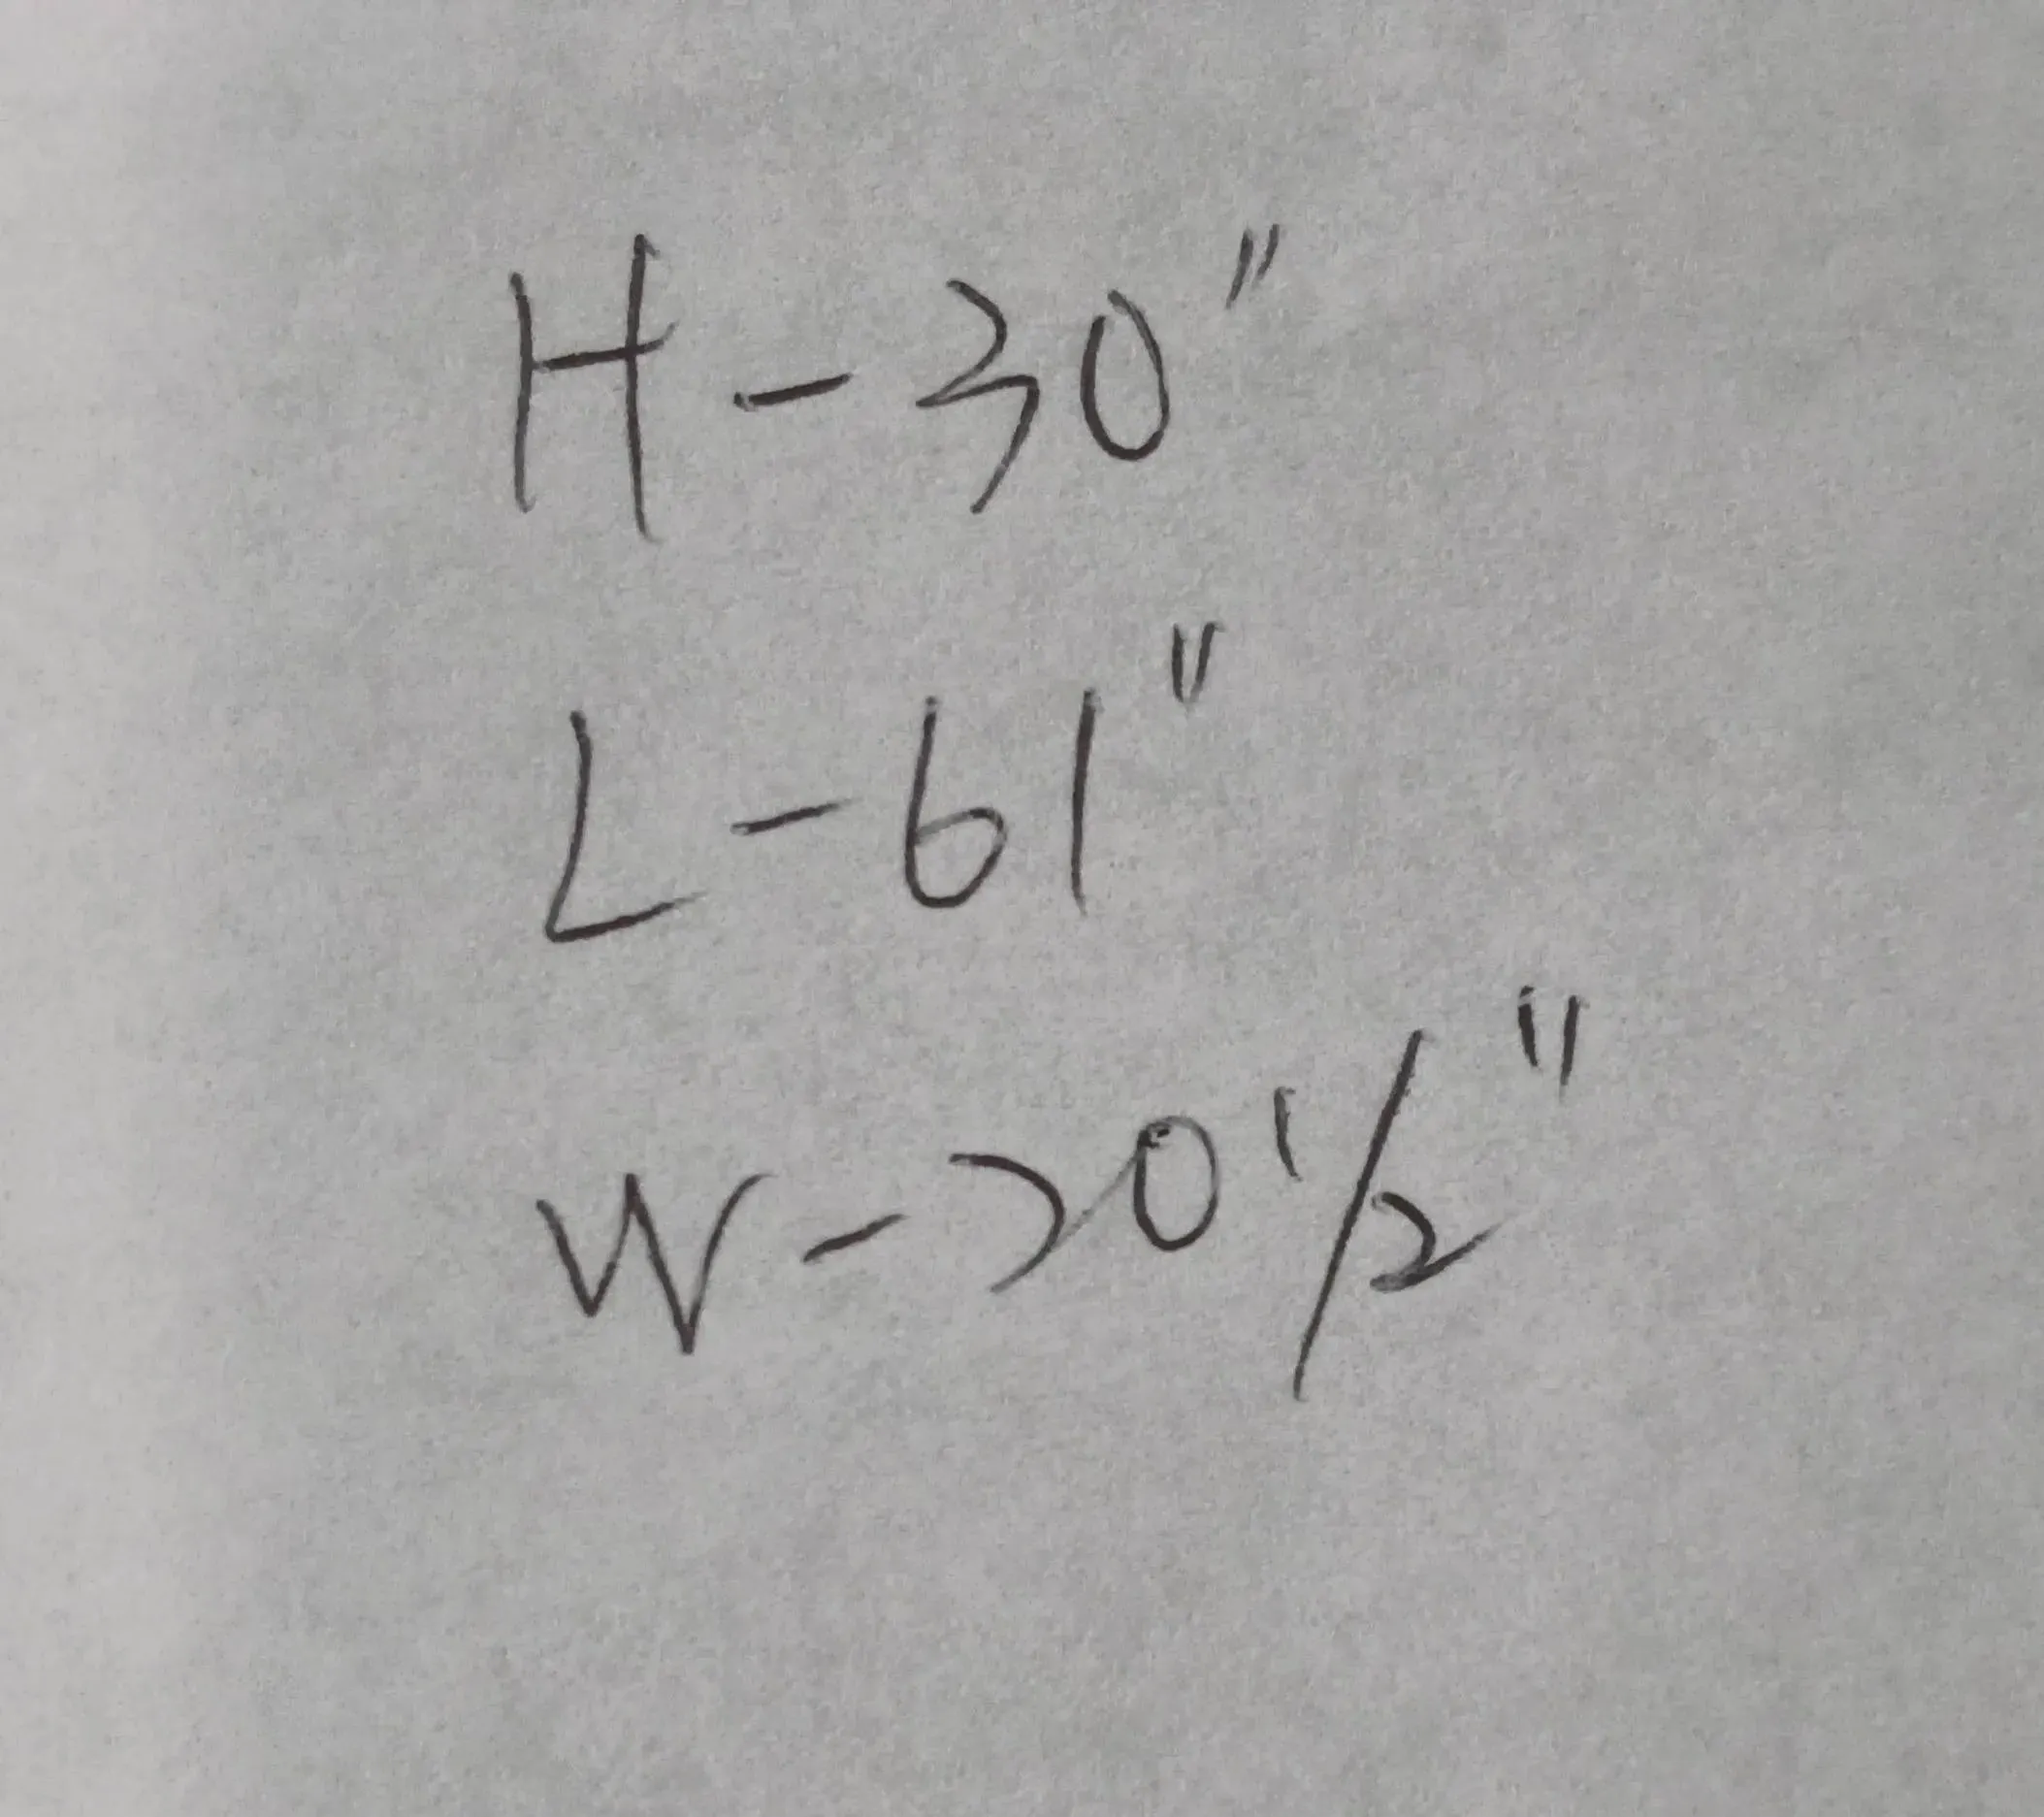 H - 30"
L - 61"
W - 20 1/2"